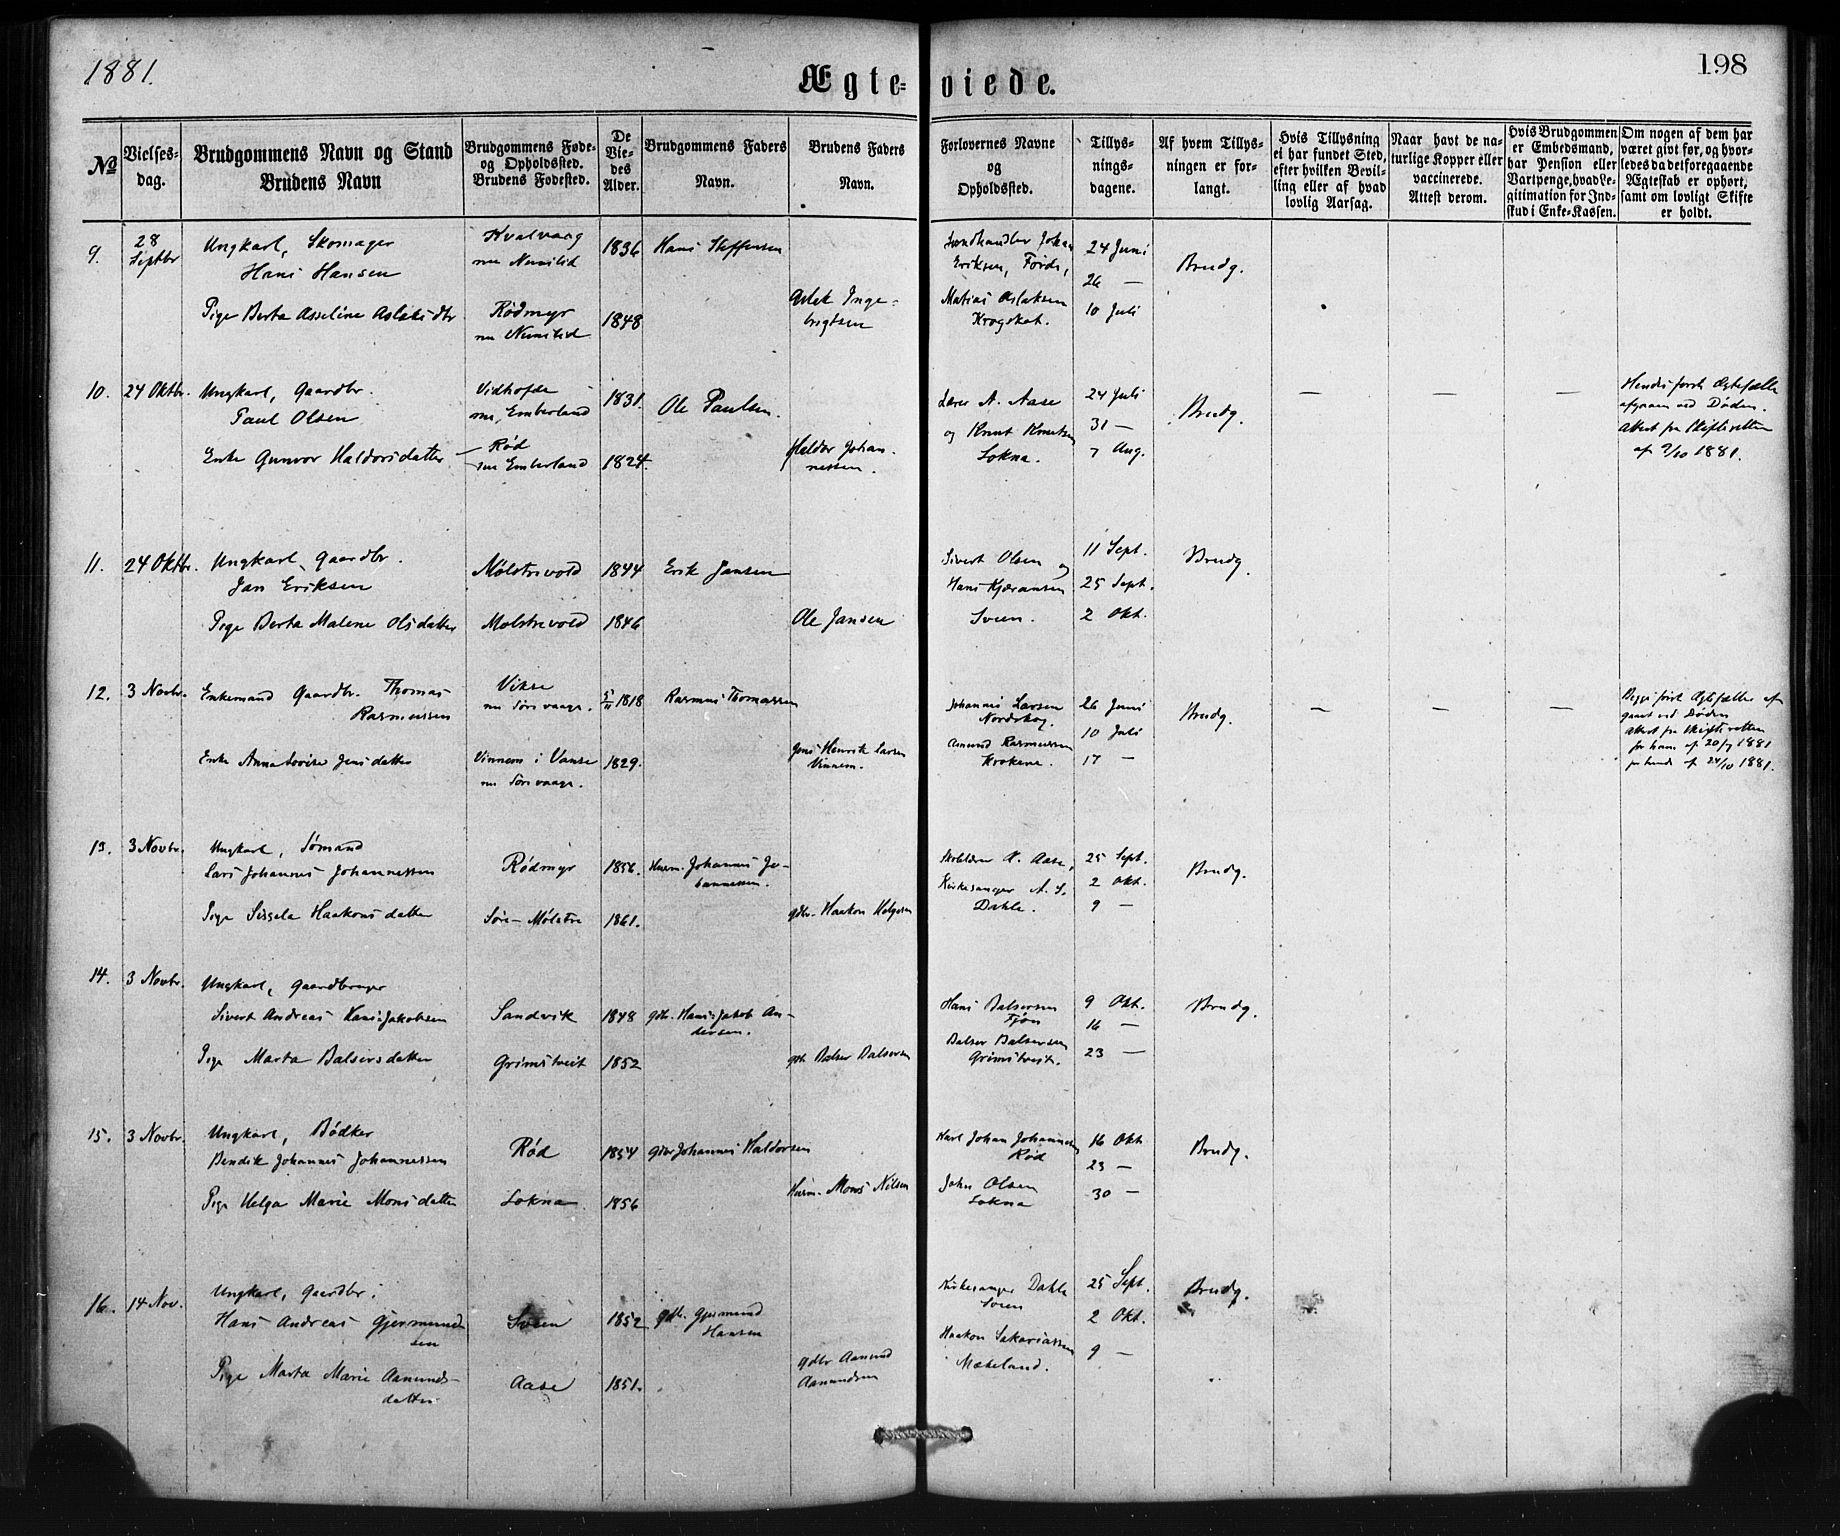 1881.
Ægte-viede.
198
No
Vielses-dag.
Brudgommens Navn og Stand
Brudens Navn
Brudgommens Føde-
og Opholdssted.
Brudens Fødested.
De
Vie-
des
Alder.
Brudgommens Faders
Navn.
Brudens Faders
Navn.
Forlovernes Navne
og
Opholdssted.
Tillys-
nings-
dagene.
Af hvem Tillys-
ningen er for-
langt.
Hvis Tillysning
ei har fundet Sted,
efter hvilken Bevil-
ling eller af hvad
lovlig Aarsag.
Naar havt de na-
turlige Kopper eller
vaccinerede.
Attest derom.
Hvis Brudgommen
er Embedsmand,
har Pension eller
Vartpenge, hvad Le-
gitimation for Ind-
skud i Enke-Kassen.
Om nogen af dem har
været givt før, og hvor-
ledes da det foregaaende
Ægteskab er ophørt,
samt om lovligt Skifte
er holdt.
9.
28
Septbr
Ungkarl, Skomager
Hans Hansen
Kvalvaag
nu
1836
Hans Steffensen
Johan
Eriksen, Førde,
24 Juni
26 —
Brudg.
Pige Berta Asseline Aslaksdtr
Rødmyr
nu
1848
Aslak Inge-
brigtsen
Matias Aslaksen
10 Juli
10.
24 Oktbr.
Ungkarl, Gaardbr.
Paul Olsen
nu Emberland
1831.
Ole Paulsen.
Lærer A. Aase
24 Juli
31 —
Brudg.
—
—
Hendes første Ægtefælle
afgaaen ved Døden.
Attest fra Skifteretten
af 9/10 1881.
Enke Gunvor Haldorsdatter
Rød
nu Emberland
1824.
Haldor Johan-
nessen.
og Knut Knutsen
Lokna.
7 Aug.
11.
24 Oktbr.
Ungkarl, Gaardbr.
Jan Eriksen
Mølstrevold
1844
Erik Jansen
Sivert Olsen og
Hans Kjæransen
11 Sept.
25 Sept.
Brudg.
Pige Berta Malene Olsdatter
Molstrevold
1846
Ole Jansen
Sveen.
2 Okt.
12.
3 Novbr.
Enkemand Gaardbr. Thomas
Rasmussen
Vikse
nu Sørevaage.
5/11 1818
Rasmus Thomassen
Johannes Larsen
Nordskog.
26 Juni
10 Juli
Brudg.
—
—
—
Begges første Ægtefæller af
gaaet ved Døden
Attest fra Skifteretten
for ham af 20/7 1881
for hende af 24/10 1881.
Enke Anna Lovise Jensdatter
Vinnem i Vanse
nu Sørevaage.
1829.
Jens Henrik Larsen
Vinnem.
Amund Rasmussen
Krokene.
17 —
13.
3 Novbr.
Ungkarl, Sømand
Lars Johannes Johannessen
Rødmyr
1856.
Husm. Johannes Jo-
hannessen.
A. Aase,
Kirkesanger A. S.
Dahle.
25 Sept.
2 Okt.
9 —
Brudg.
Pige Sissela Haakonsdatter
Søre-Mølstre
1861.
gdbr. Haakon Helgesen
14.
3 Novbr.
Ungkarl, Gaardbruger
Sivert Andreas Hans-Jakobsen
Sandvik
1848
gdbr. Hans-Jakob An-
dersen.
Hans Balsersen
Fjon
9 Okt.
16 —
Brudg.
Pige Marta Balsersdatter
Grimstveit
1852
gdb. Balser Balsersen
Balser Balsersen
Grimstveit.
23 —
15.
3 Novbr.
Ungkarl, Bødker
Bendik Johannes Johannessen
Rød
1854
gdbr Johannes Haldorsen
Karl Johan Johannesen
Rød
16 Okt
23 —
Brudg.
Pige Helga Marie Monsdatter
Lokna
1856
Husm. Mons Nilsen
John Olsen
Lokna
30 —
16.
14 Nov.
Ungkarl, Gaardbr.
Hans Andreas Gjermund-
sen
Sveen
1852
gdb. Gjermund
Hansen
Kirkesanger Dahle
Sveen
25 Sept.
2 Okt.
Brudg.
Pige Marta Marie Aamunds-
datter
Aase
1851.
gdbr Aamund
Aamundsen
Haakon Sakariassen
Mækeland.
9 —